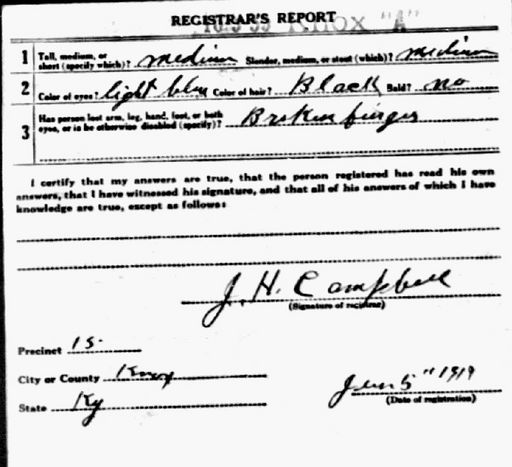 REGISTRAR'S REPORT
KNOX "A"
1 Tall, medium, or short (specify which)? medium Slender, medium, or stout (which)? medium
2 Color of eyes? light blue Color of hair? Black Bald? no
3 Has person lost arm, leg, hand, foot, or both eyes, or is he otherwise disabled (specify)? Broken finger
I certify that my answers are true, that the person registered has read his own
answers, that I have witnessed his signature, and that all of his answers of which I have
knowledge are true, except as follows:
J. H. Campbell
(Signature of registrar)
Precinct 15
City or County Knox
State Ky
June 5" 1917
(Date of registration)